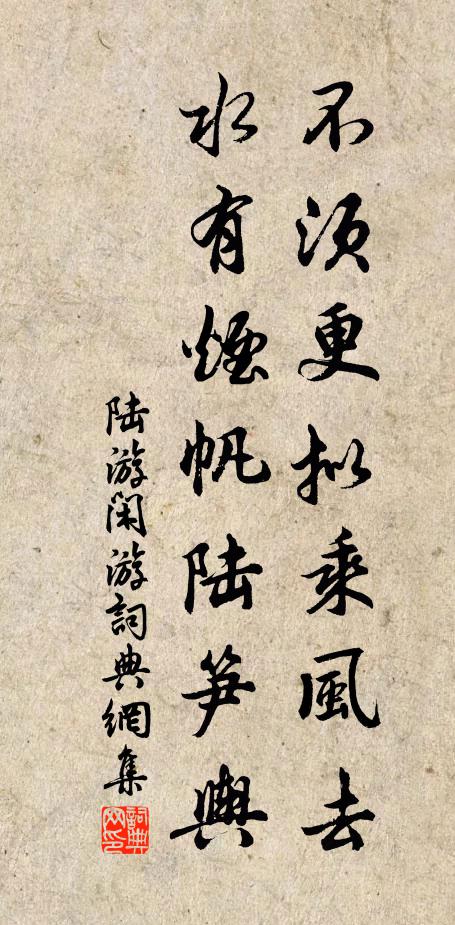 不須更拟乘風去
水有煙帆陸笋輿
陸游閑游詞典網集
詞典网印